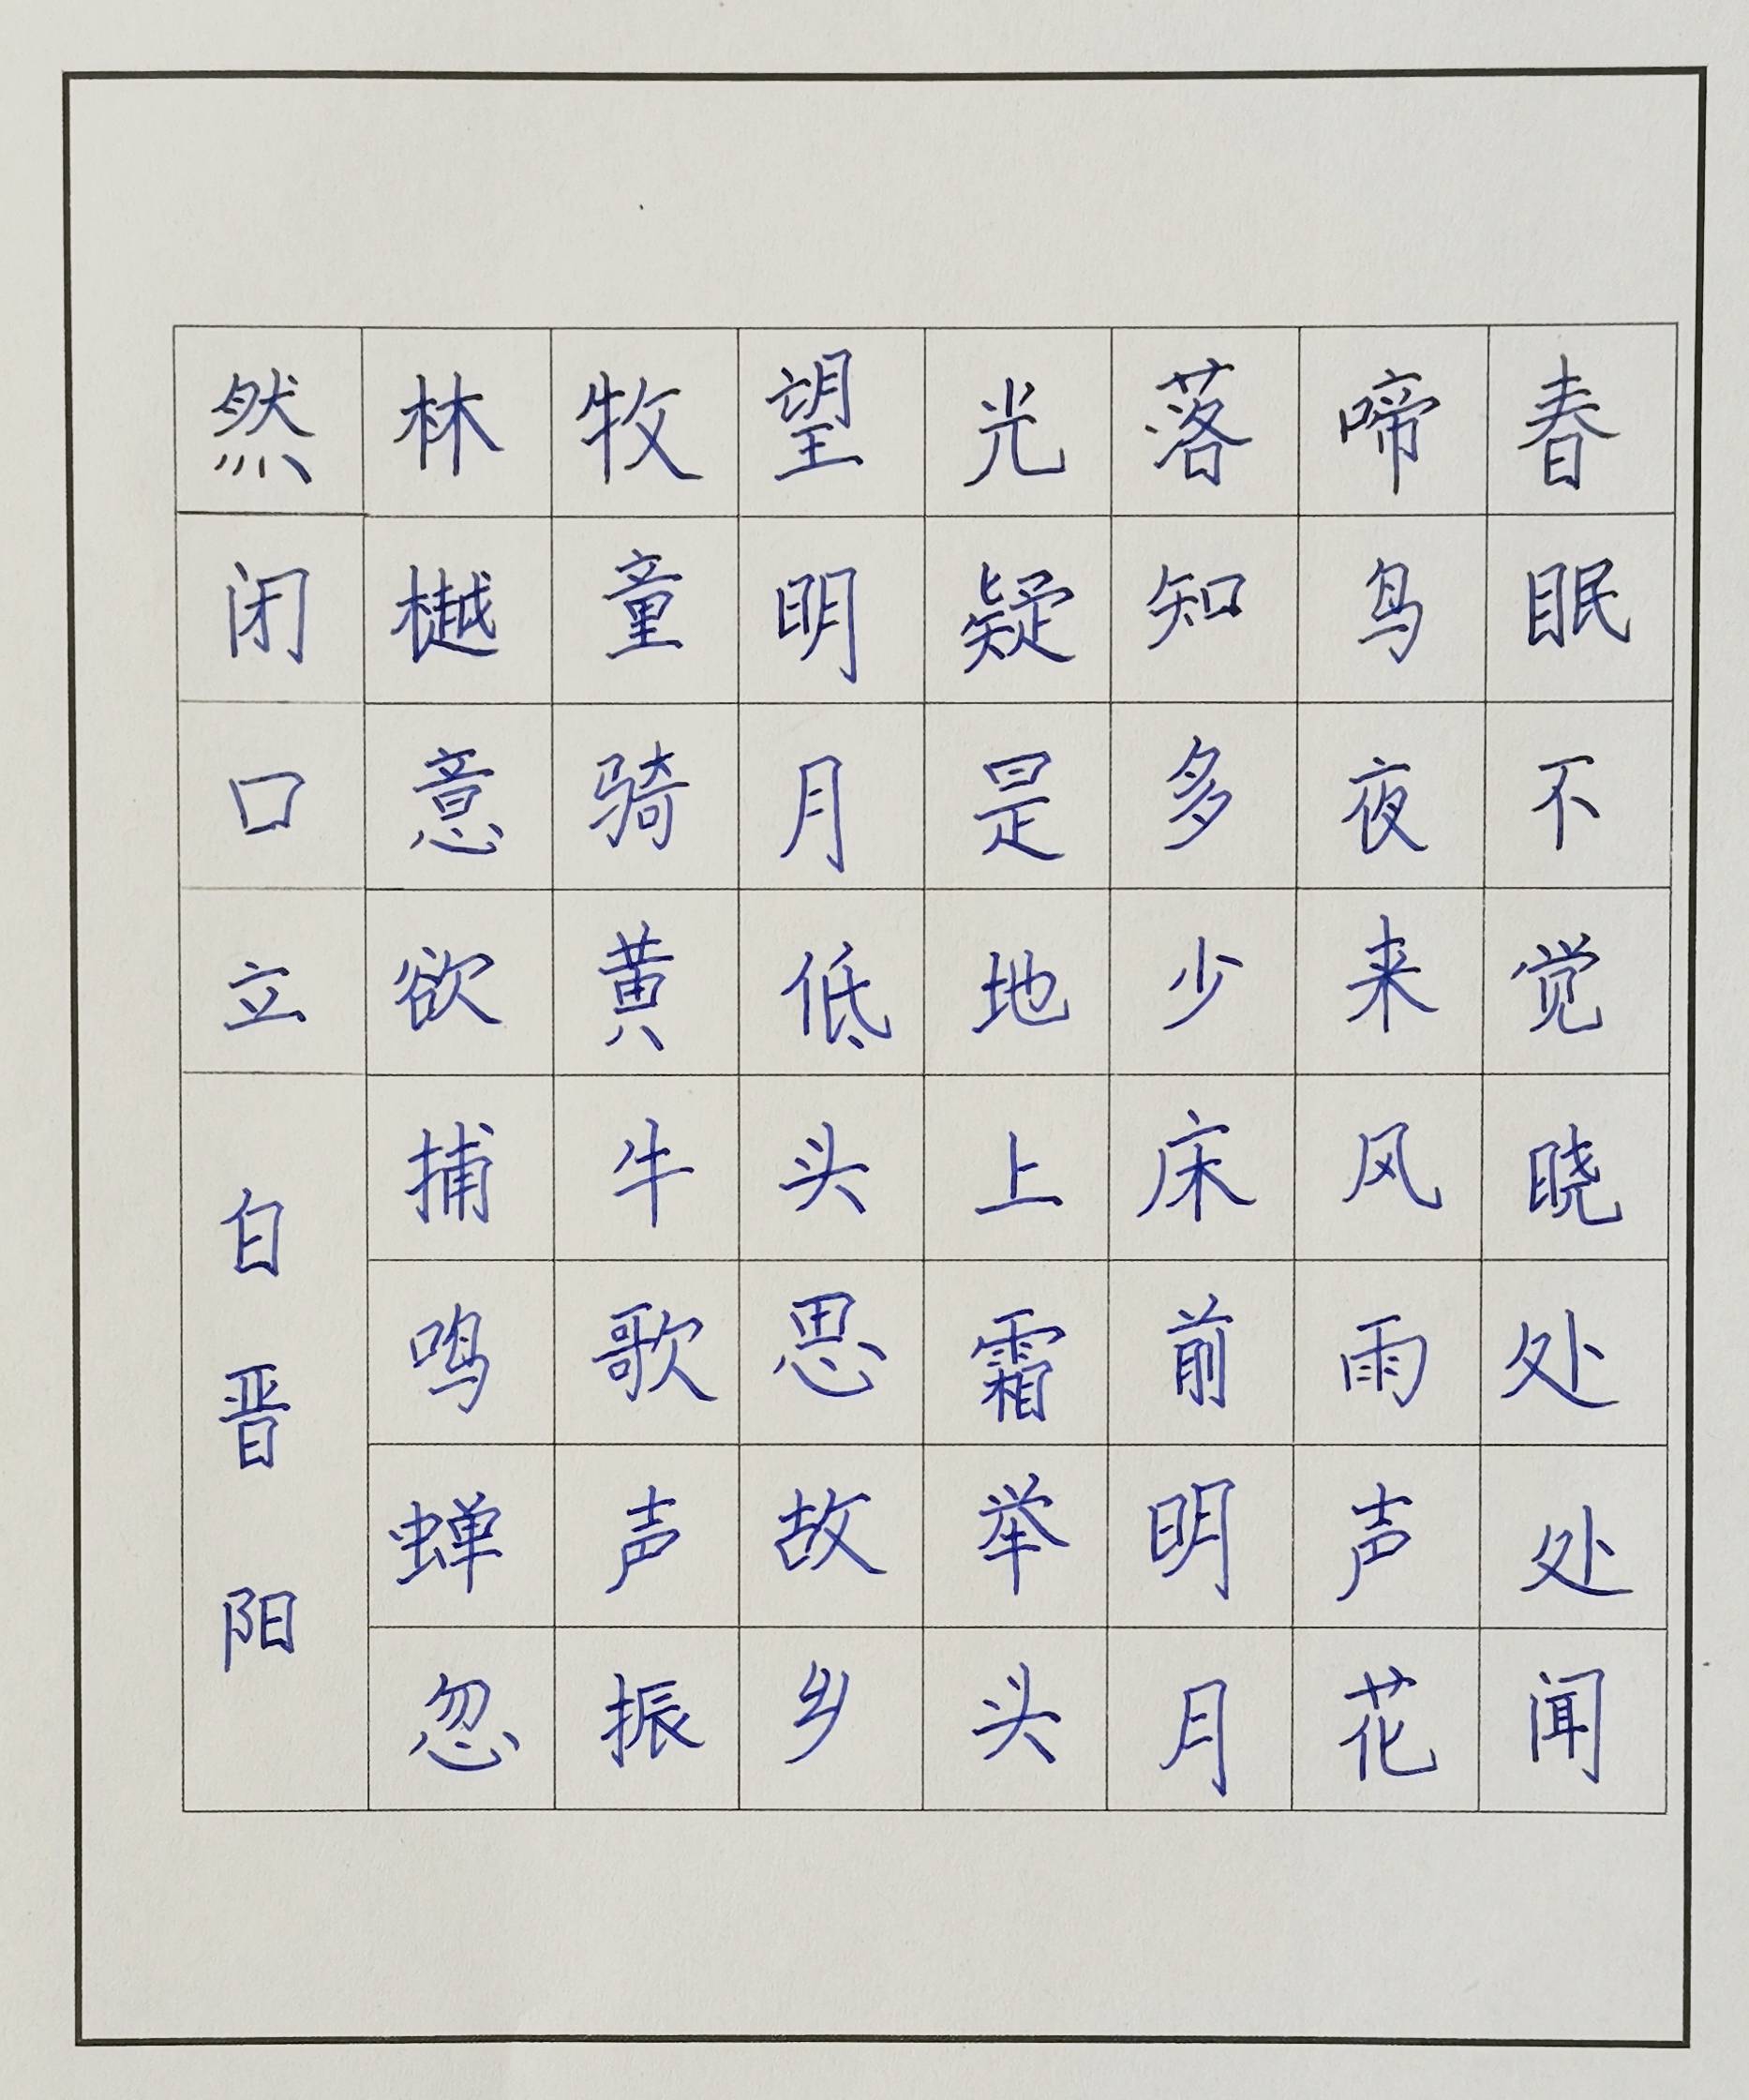 春眠不觉晓处处闻
啼鸟夜来风雨声花
落知多少床前明月
光疑是地上霜举头
望明月低头思故乡
牧童骑黄牛歌声振
林樾意欲捕鸣蝉忽
然闭口立
白晋阳